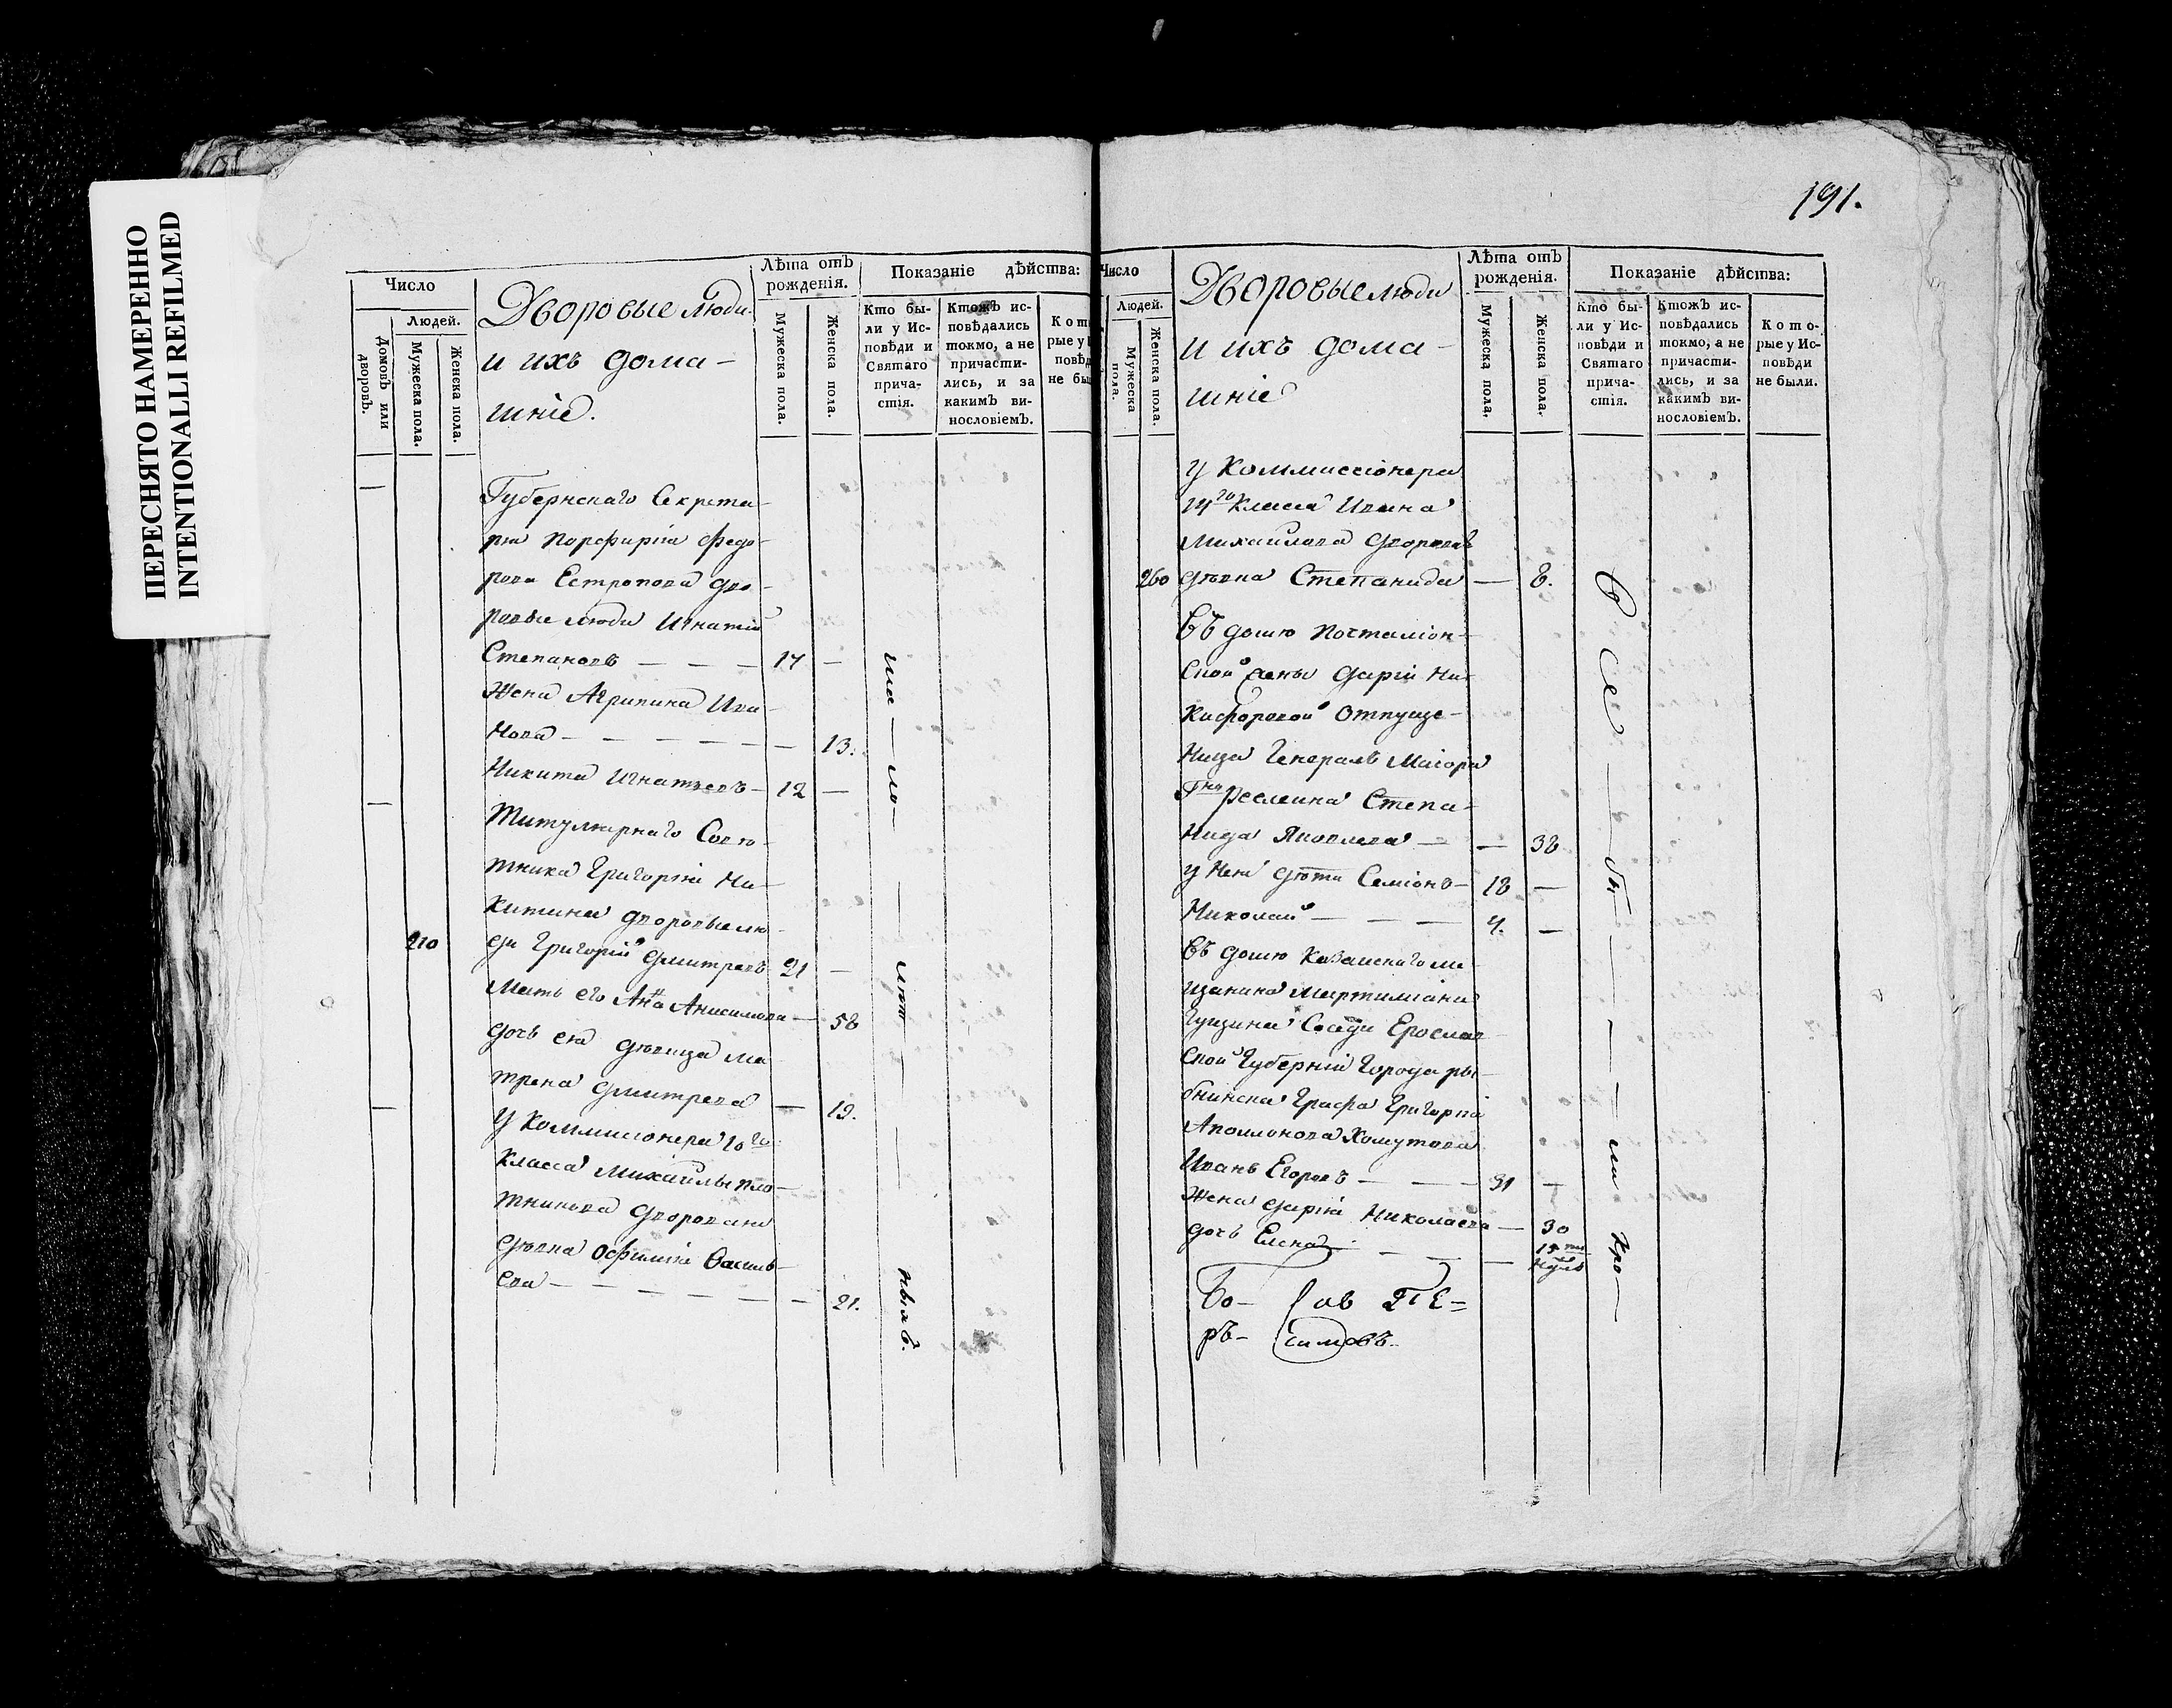 ПЕРЕСНЯТО НАМЕРЕННО
INTENTIONALLI REFILMED
191.
Число
Людей.
Домовъ или дворовъ.
Мужеска пола.
Женска пола.
Дворовые люди
и ихъ дома-
шніе.
Лѣта отъ рожденія.
Мужеска пола.
Женска пола.
Показаніе дѣйства:
Кто бы-
ли у Ис-
повѣди и
Святаго
прича-
стія.
Ктожъ ис-
повѣдались
токмо, а не
причасти-
лись, и за
какимъ ви-
нословіемъ.
Губернскаго Секрета-
ря Порфирія Федо-
рова Естропова дво-
ровые люди Игнатій
Степановъ — — — 17 —
Жена Агрипина Ива-
нова — — — — — 13.
Никита Игнатьевъ — 12 —
Титулярнаго Совѣ-
тника Григорія Ни-
китина дворовые лю-
210 ди Григорій Дмитревъ 21 —
Мать его Анна Анисимова — 58
дочь ея дѣвица Ма-
трена Дмитрева — 19.
У Коммисіонера 10го
класса Михайлы Пло-
тникова дворовая
дѣвка Офимія Василь-
ева — — — — — — 21.
Число
Людей.
Мужеска пола.
Женска пола.
Дворовые люди
и ихъ дома-
шніе
Лѣта отъ рожденія.
Мужеска пола.
Женска пола.
Показаніе дѣйства:
Кто бы-
ли у Ис-
повѣди и
Святаго
прича-
стія.
Ктожъ ис-
повѣдались
токмо, а не
причасти-
лись, и за
какимъ ви-
нословіемъ.
Кото-
рые у Ис-
повѣди
не были.
У Коммиссіонера
14го Класса Ивана
Михайлова дворовая
260 дѣвка Степанида — 8.
Въ дому Почталіон-
ской жены Дарьи Ни-
кифоровой отпуще-
ница Генералъ Маіора
Степа-
нида Яковлева — — 38
у нея дѣти Семіонъ — 18 —
Николай — — — 4. —
Въ дому Казанскаго ме-
щанина Мартиміана
Ерослав-
ской Губерніи Города Ры-
бнинска Графа Григорія
Аполлонова Хомутова
Иванъ Егоровъ — — — 31 —
Жена Дарія Николаева — 30
дочь Елена — — —